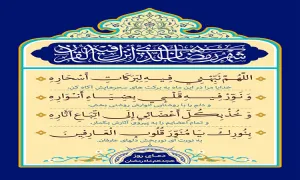 شهر رمضان الذی انزل فیه القرآن
اللَّهُمَّ نَبِّهْنِي فِيهِ لِبَرَكَاتِ أَسْحَارِهِ
خدایا مرا در این ماه به برکت های سحرهایش آگاه کن
وَ نَوِّرْ فِيهِ قَلْبِي بِضِيَاءِ أَنْوَارِهِ
و دلم را با روشنائی انوارش روشنی بخش
وَ خُذْ بِكُلِّ أَعْضَائِي إِلَى اتِّبَاعِ آثَارِهِ
و تمام اعضایم را به پیروی آثارش بگمار
بِنُورِكَ يَا مُنَوِّرَ قُلُوبِ الْعَارِفِينَ
به نورت ای نوربخش دلهای عارفان
دعای روز
هجدهم ماه رمضان